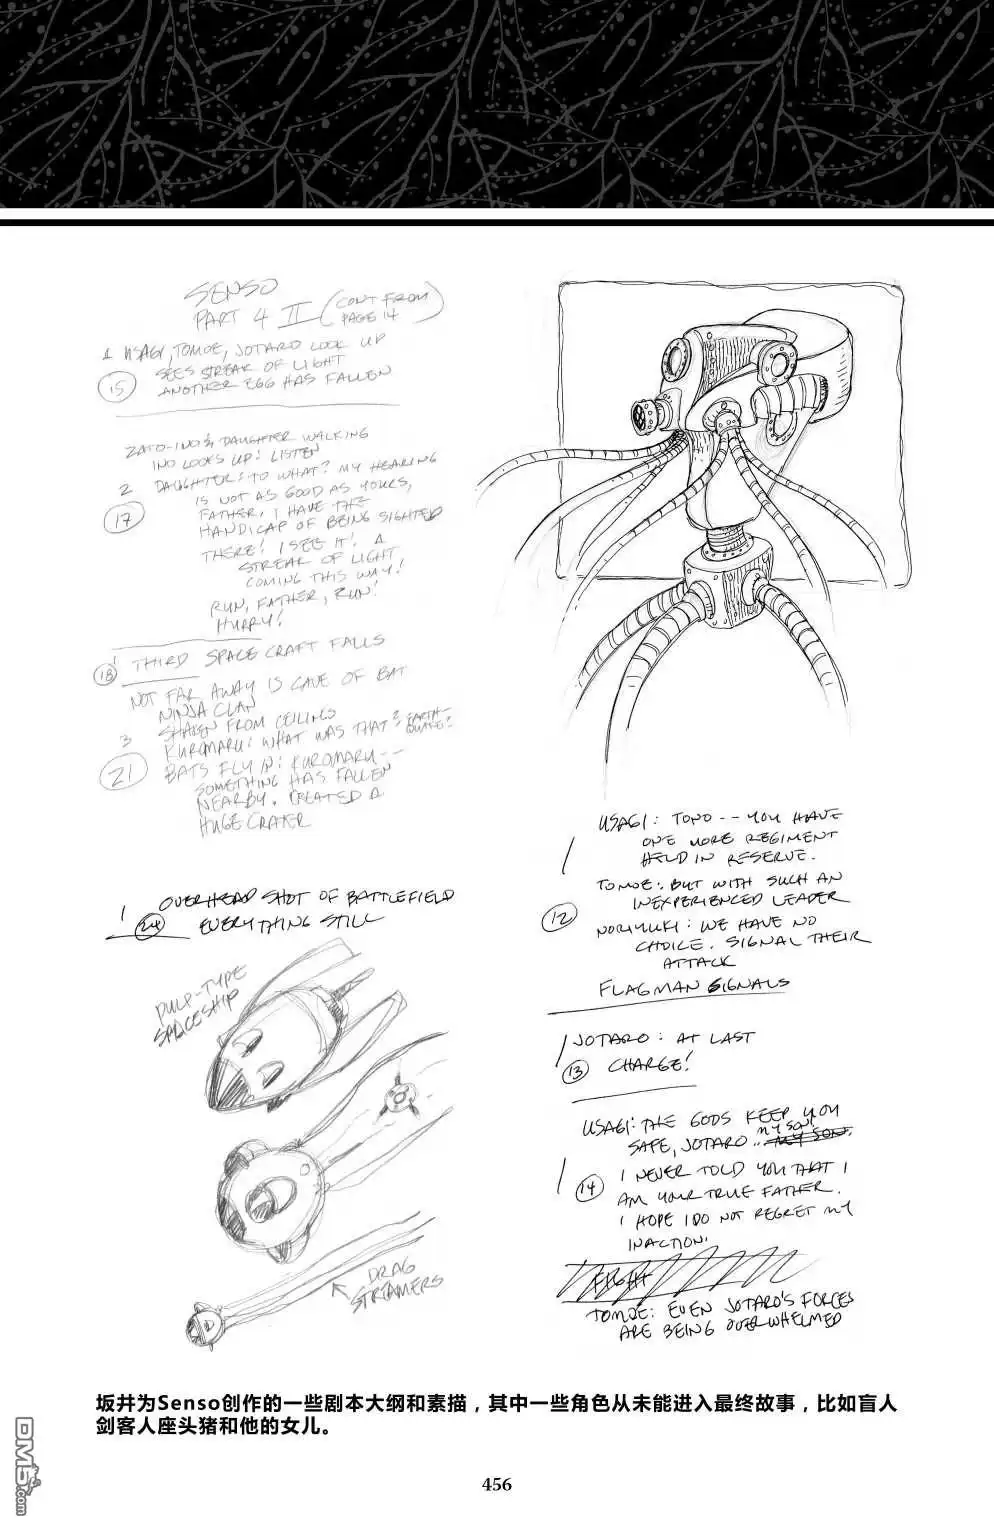 SENSO
PART 4 II (CONT FROM
PAGE 14
1 USAGI, TOMOE, JOTARO LOOK UP
SEES STREAK OF LIGHT
15 ANOTHER EGG HAS FALLEN
ZATO-INO & DAUGHTER WALKING
INO LOOKS UP: LISTEN
2 DAUGHTER: TO WHAT? MY HEARING
IS NOT AS GOOD AS YOURS,
17 FATHER, I HAVE THE
HANDICAP OF BEING SIGHTED
THERE! I SEE IT! A
STREAK OF LIGHT
COMING THIS WAY!
RUN, FATHER, RUN!
HURRY!
18 THIRD SPACE CRAFT FALLS
NOT FAR AWAY IS CAVE OF BAT
NINJA CLAN
SHAKEN FROM CEILING
3 KUROMARU: WHAT WAS THAT? EARTH-
QUAKE?
21 BATS FLY IN: KUROMARU--
SOMETHING HAS FALLEN
NEARBY. CREATED A
HUGE CRATER
1 OVERHEAD SHOT OF BATTLEFIELD
24 EVERYTHING STILL
PULP-TYPE
SPACESHIP
DRAG
STREAMERS
USAGI: TONO -- YOU HAVE
1 ONE MORE REGIMENT
HELD IN RESERVE.
TOMOE: BUT WITH SUCH AN
INEXPERIENCED LEADER
12 NORIYUKI: WE HAVE NO
CHOICE. SIGNAL THEIR
ATTACK
FLAGMAN SIGNALS
1 JOTARO: AT LAST
13 CHARGE!
USAGI: THE GODS KEEP YOU
SAFE, JOTARO .. MY SON
MY SON.
1 I NEVER TOLD YOU THAT I
14 AM YOUR TRUE FATHER.
I HOPE I DO NOT REGRET MY
INACTION.
FIGHT
TOMOE: EVEN JOTARO'S FORCES
ARE BEING OVERWHELMED
坂井为Senso创作的一些剧本大纲和素描，其中一些角色从未能进入最终故事，比如盲人
剑客人座头猪和他的女儿。
456
DM5.com